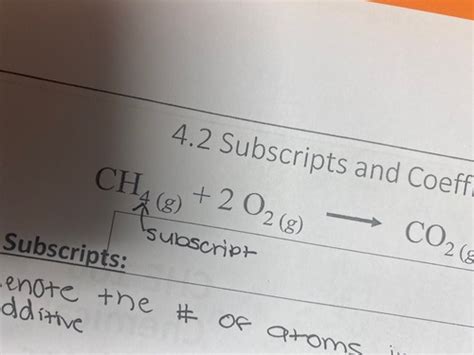 4.2 Subscripts and Coeff
CH₄ (g) + 2 O₂ (g) ⟶ CO₂ (g
subscript
Subscripts:
enote the # of atoms
dditive